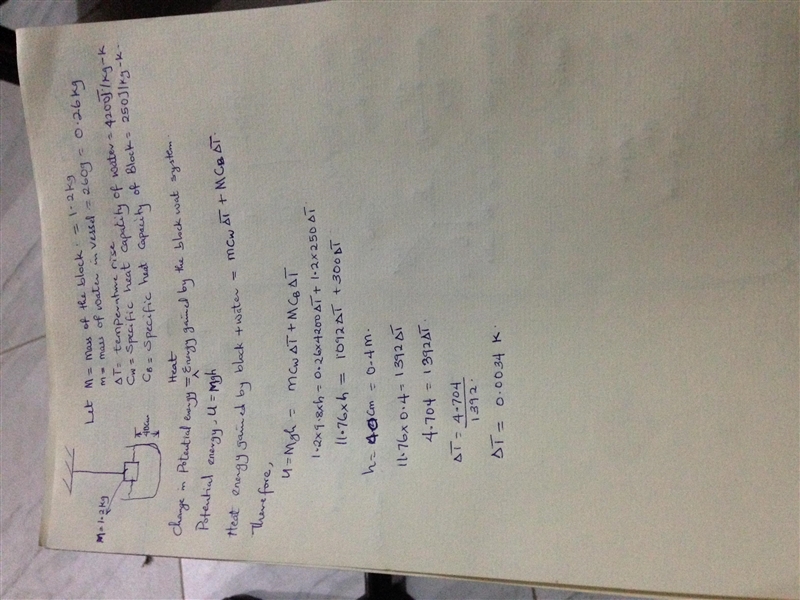 M=1.2kg
40cm
Let M = mass of the block = 1.2 kg
m = mass of water in vessel = 260g = 0.26kg
ΔT = temperature rise
Cw = Specific heat Capacity of water = 4200J/kg-K
CB = Specific heat Capacity of Block = 250J/kg-K.
Change in Potential energy = Heat Energy gained by the block wat system.
Potential energy, U = Mgh
Heat energy gained by block + water = mCwΔT + MCBΔT
Therefore,
U = Mgh = mCwΔT + MCBΔT
1.2x9.8xh = 0.26x4200ΔT + 1.2x250ΔT
11.76xh = 1092ΔT + 300ΔT
h = 40cm = 0.4m.
11.76x0.4 = 1392ΔT
4.704 = 1392ΔT.
ΔT = 4.704/1392.
ΔT = 0.0034 K.